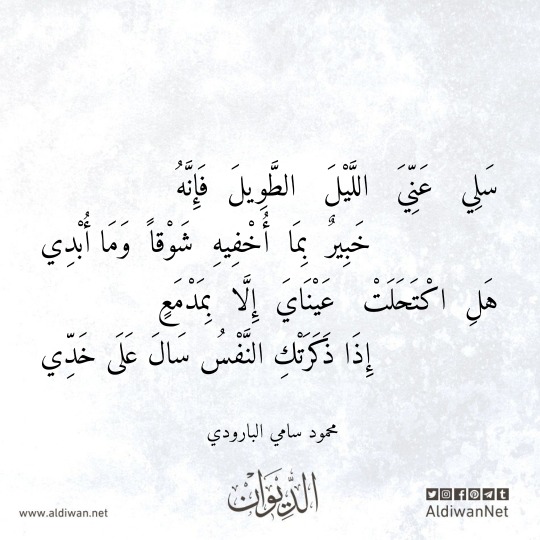 سَلِي عَنِّيَ اللَّيْلَ الطَّوِيلَ فَإِنَّهُ
خَبِيرٌ بِمَا أُخْفِيهِ شَوْقاً وَمَا أُبْدِي
هَلِ اكْتَحَلَتْ عَيْنَايَ إِلَّا بِمَدْمَعٍ
إِذَا ذَكَرَتْكِ النَّفْسُ سَالَ عَلَى خَدِّي
محمود سامي البارودي
الدِّيوَانْ
www.aldiwan.net
AldiwanNet